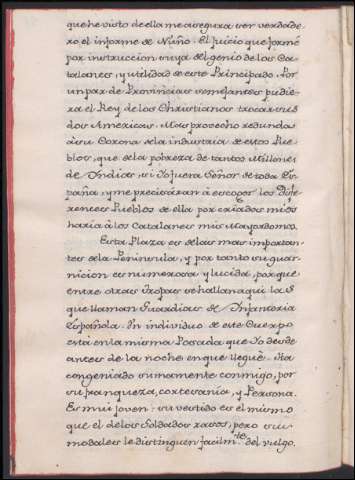 que he visto de ella me asegura ser verdade-
ro el informe de Nuño. El juicio que formé
por instruccion suya del genio de los Ca-
talanes, y utilidad de este Principado. Por
un par de Provincias semejantes pudie-
ra el Rey de los Christianos trocar sus
dos Americas. Mas provecho redunda
à su Corona de la industria de estos Pue-
blos, que de la pobreza de tantos Millones
de Indios. si Yo fuera Señor de toda Es-
paña, y me precisáran à escoger los Dife-
rentes Pueblos de ella por criados mios
haria à los Catalanes mis Mayordomos.
Esta Plaza es de las mas importan-
tes de la Peninsula, y por tanto su guar-
nicion es numerosa y lucida, porque
entre otras tropas se hallan aqui las
que llaman Guardias de Infanteria
Española. Un individuo de este Cuerpo
està en la misma Posada que Yo desde
antes de la noche en que lleguè. Ha
congeniado sumamente conmigo, por
su franqueza, cortesanía, y Persona.
Es mui joven: su vestido es el mismo
que el de los Soldados rasos, pero sus
modales le distinguen facilm.te del vulgo.